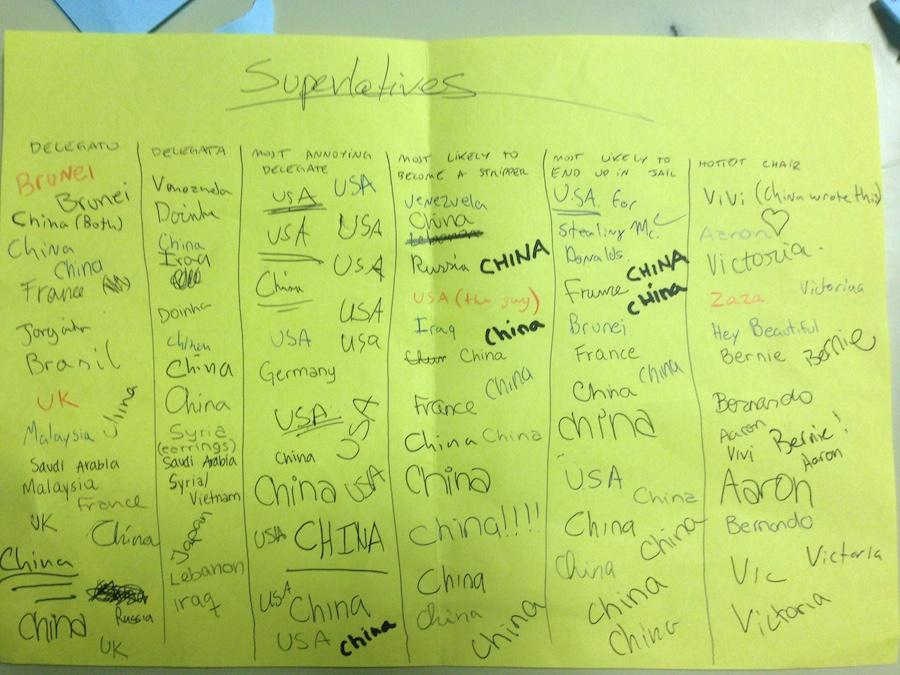 Superlatives
DELEGATO
BRUNEI
Brunei
China (Both)
China
China
France
Brasil
UK
China
Malaysia
Saudi Arabia
Malaysia
France
UK
China
China
Russia
China
UK
DELEGATA
Venezuela
Doinha
China
Iraq
Doinha
China
China
China
Syria
(earrings)
Saudi Arabia
Syria/
Vietnam
Japan
Lebanon
iraq
MOST ANNOYING
DELEGATE
USA USA
USA USA
USA
China
USA
USA USA
Germany
USA USA
China
China USA
USA CHINA
USA China
USA China
MOST LIKELY TO
BECOME A STRIPPER
Venezuela
China
Lebanon
Russia CHINA
USA (the guy)
Iraq China
China
China
France
China China
China
China!!!!
China
China
China
MOST LIKELY TO
END UP IN JAIL
U.S.A. for
Stealing Mc.
Donalds.
CHINA
France CHINA
Brunei
France
China China
China
USA
China
China
China China
China
China
HOTTEST CHAIR
ViVi (China wrote this)
Aaron ♡
Victoria.
Zaza Victoria
Hey Beautiful
Bernie Bernie
Bernando
Aaron
Vivi Bernie!
Aaron
Aaron
Bernando
Vic Victoria
Victoria